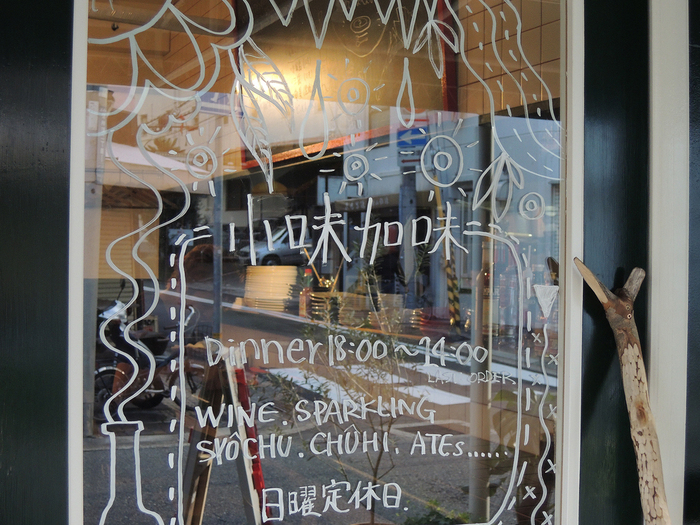 小味加味
Dinner 18:00〜24:00
LAST ORDER
WINE. SPARKLING
SYÔCHU. CHÛHI. ATEs......
日曜定休日.